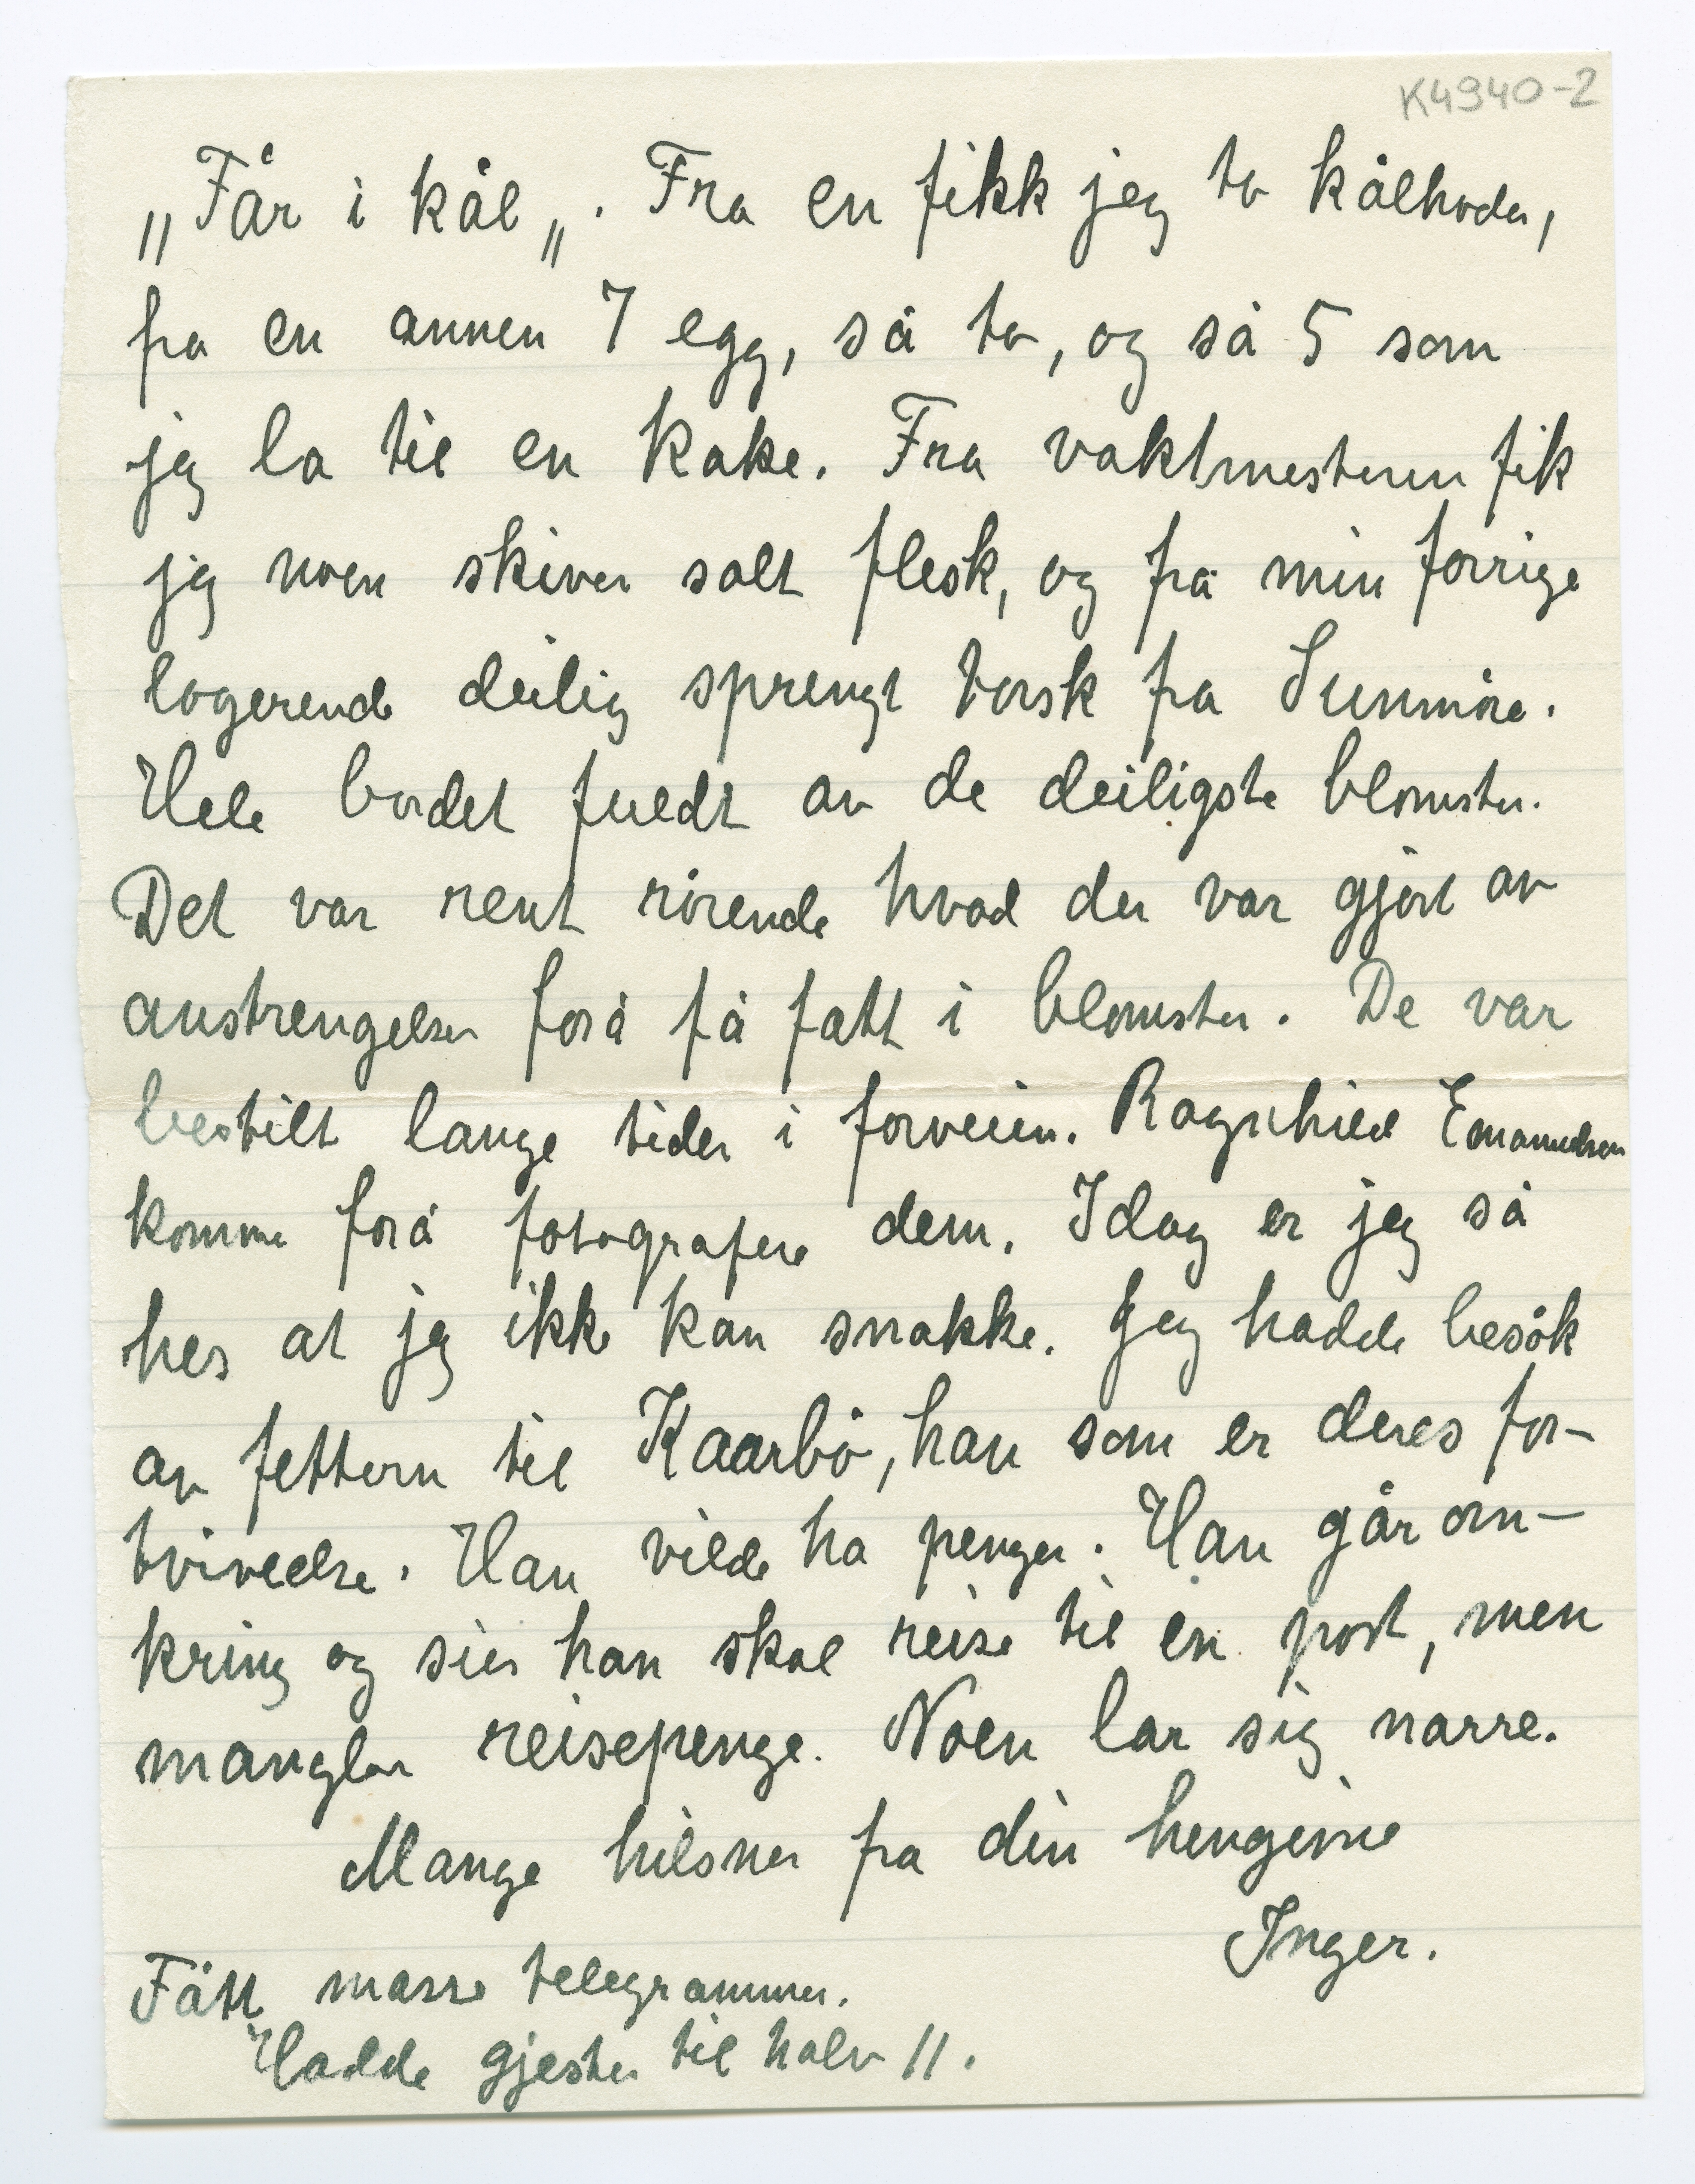 K4940-2
„Får i kål„. Fra en fikk jeg to kålhoder,
fra en annen 7 egg, så to, og så 5 som
jeg la til en kake. Fra vaktmesteren fik
jeg noen skiver salt flesk, og fra min forrige
logerende deilig sprengt torsk fra Sunmöre.
Hele bordet fuldt av de deiligste blomster.
Det var rent rörende hvad der var gjort av
anstrengelser forå få fatt i blomster. De var
bestilt lange tider i forveien. Ragnhild Emanuelsen
komme forå fotografere dem. Idag er jeg så
hes at jeg ikke kan snakke. Jeg hadde besök
av fettern til Kaarbö, han som er deres for-
tvivelse. Han vilde ha penger. Han går om-
kring og sier han skal reise til en post, men
mangler reisepenge. Noen lar sig narre.
Mange hilsner fra din hengivne
Inger.
Fått masse telegrammer.
Hadde gjester til halv 11.